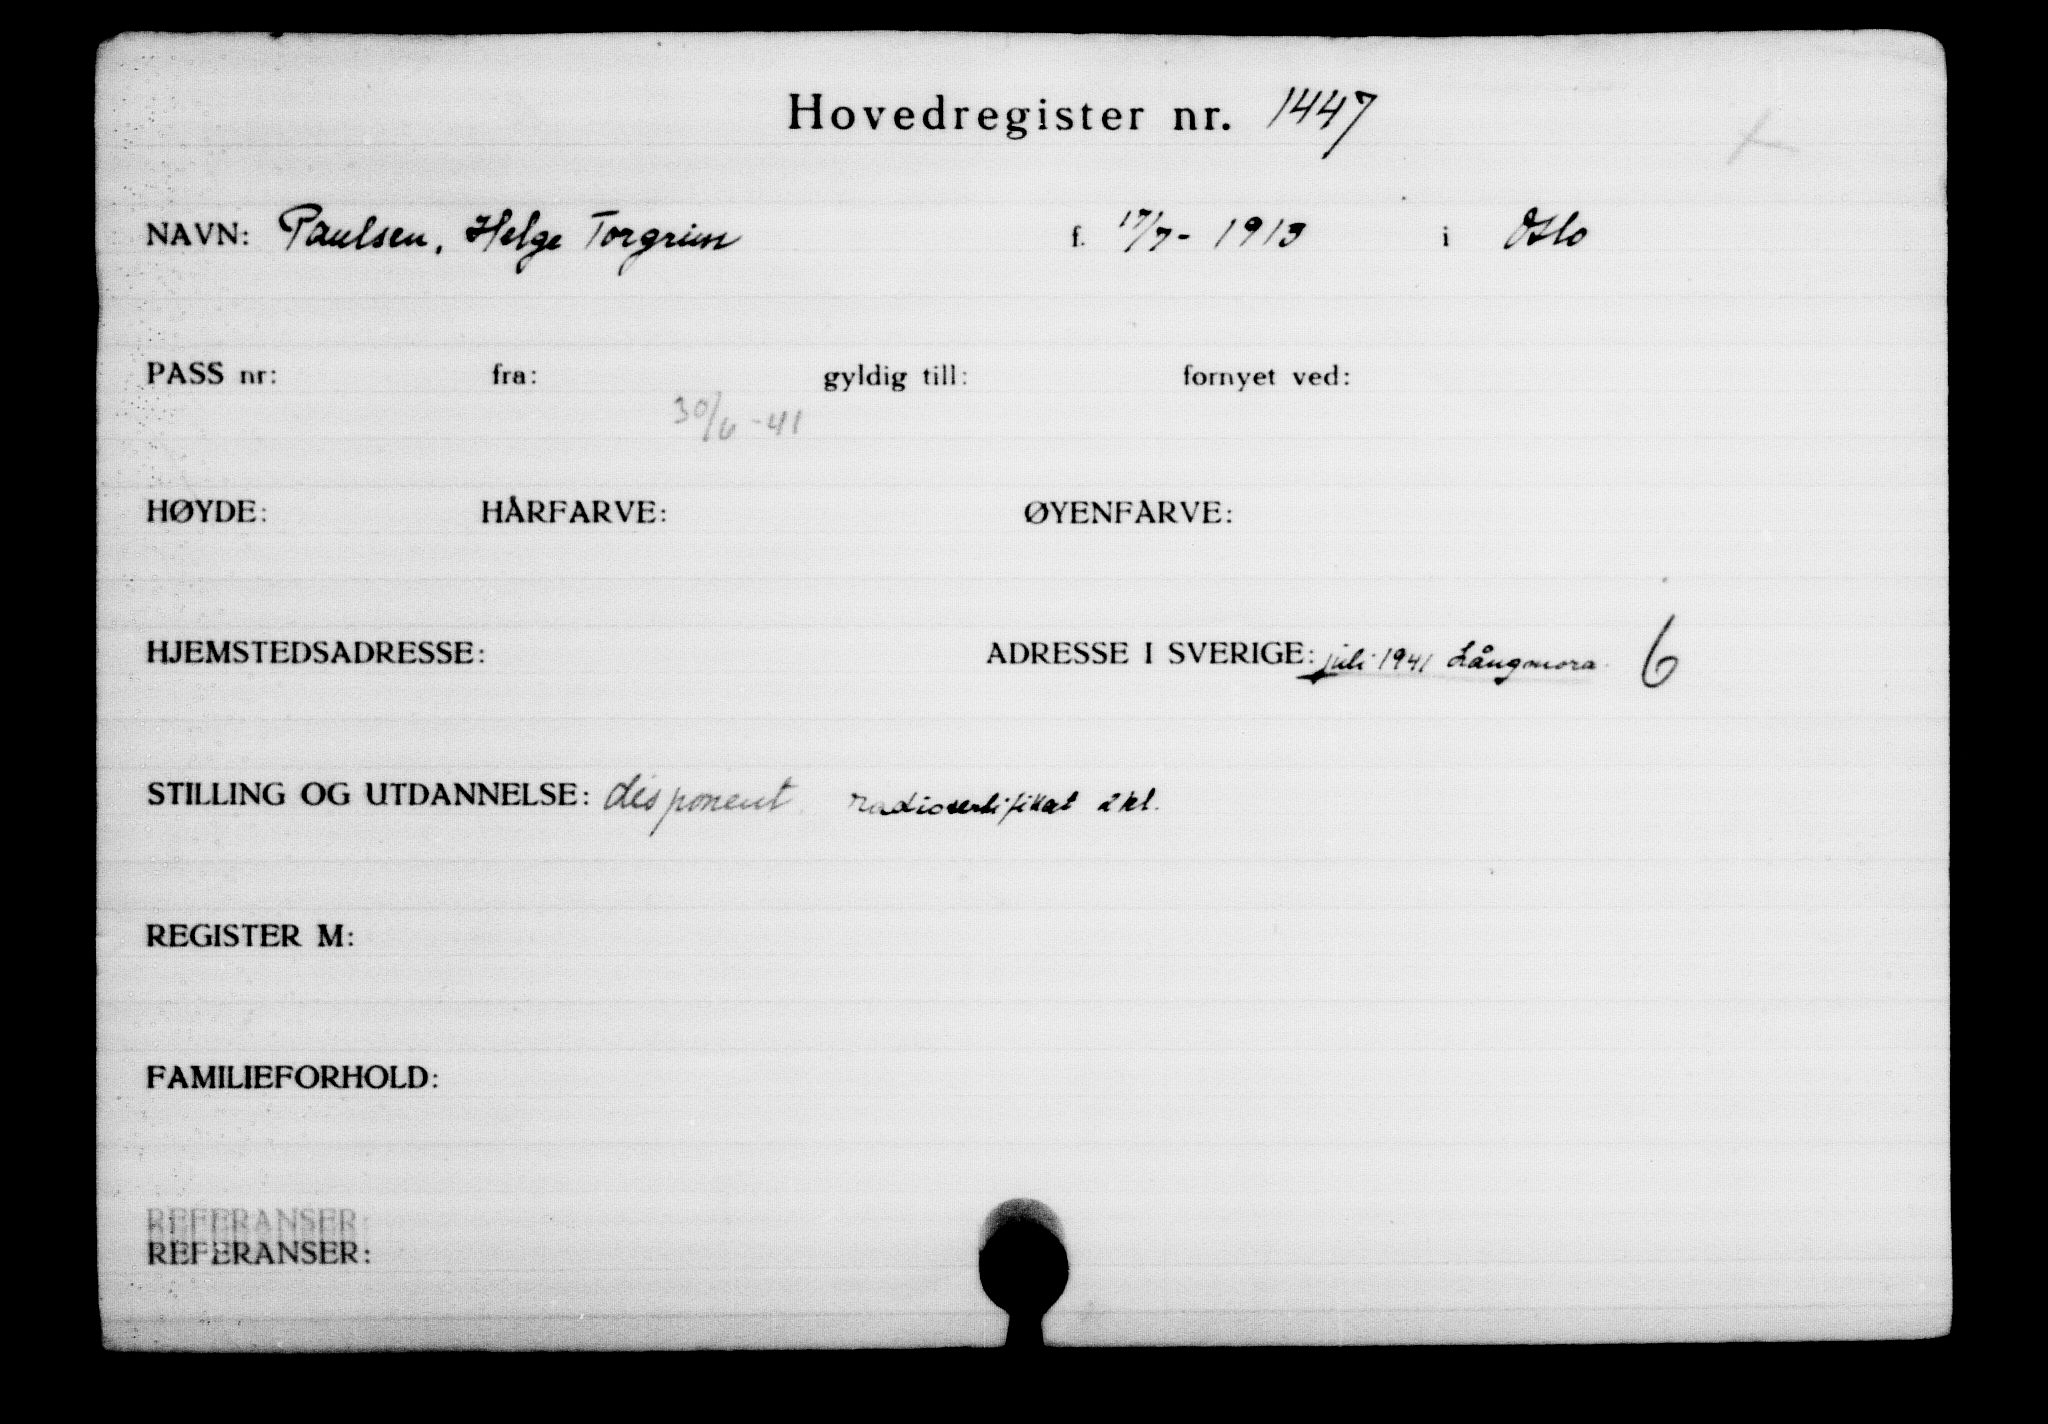 Hovedregister nr. 1447
NAVN: Paulsen, Helge Torgrim f. 17/7 - 1913 i Oslo
PASS nr: fra: gyldig till: fornyet ved:
30/6 - 41
HØYDE: HÅRFARVE: ØYENFARVE:
HJEMSTEDSADRESSE: ADRESSE I SVERIGE: juli 1941 Långmora. 6
STILLING OG UTDANNELSE: disponent. radiosertifikat 2 kl.
REGISTER M:
FAMILIEFORHOLD:
REFERANSER:
REFERANSER: